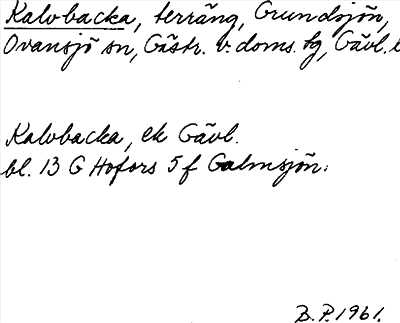 Kalvbacka, terräng, Grundsjön,
Ovansjö sn, Gästr. v. doms. tg, Gävl. l
Kalvbacka, ek Gävl.
bl. 13 G Hofors 5 f Galmsjön.
B.P. 1961.